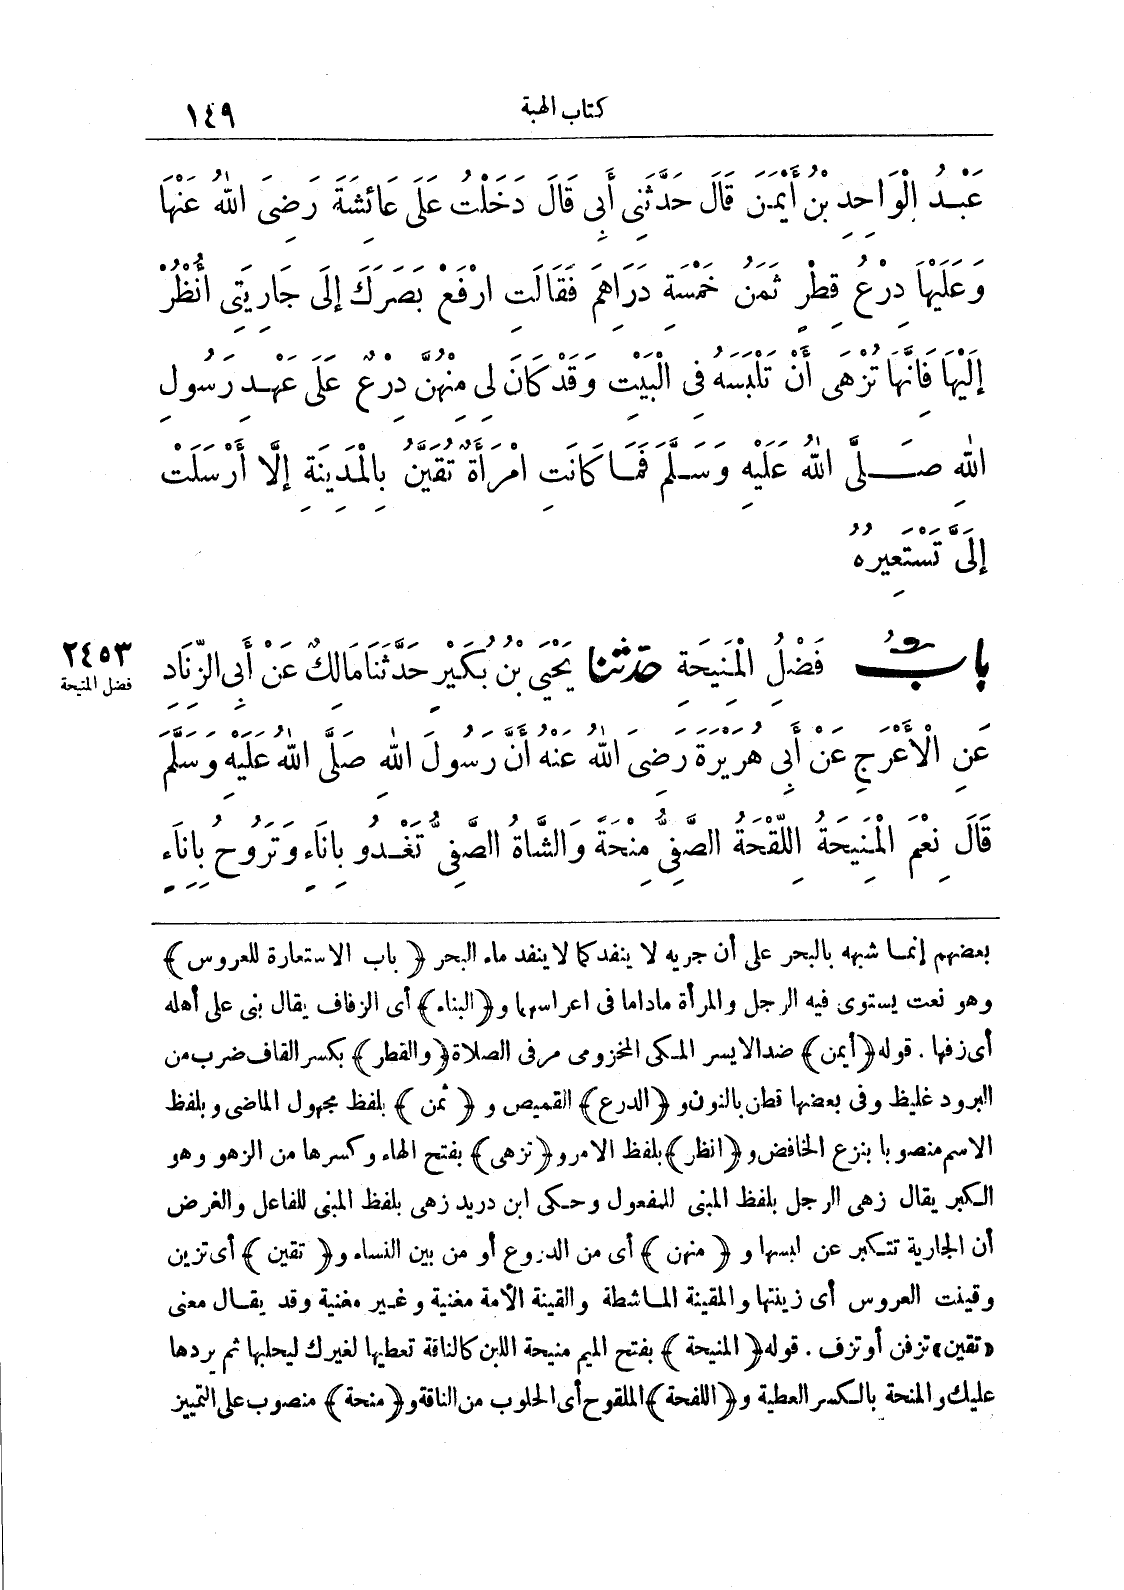 كتاب الهبة ١٤٩
عَبْدُ الْوَاحِدِ بْنُ أَيْمَنَ قَالَ حَدَّثَنِى أَبِى قَالَ دَخَلْتُ عَلَى عَائِشَةَ رَضِىَ اللهُ عَنْهَا
وَعَلَيْهَا دِرْعُ قِطْرٍ ثَمَنُ خَمْسَةِ دَرَاهِمَ فَقَالَتِ ارْفَعْ بَصَرَكَ إِلَى جَارِيَتِى أُنْظُرْ
إِلَيْهَا فَانَّهَا تُزْهَى أَنْ تَلْبَسَهُ فِى الْبَيْتِ وَقَدْ كَانَ لِى مِنْهُنَّ دِرْعٌ عَلَى عَهْدِ رَسُولِ
اللهِ صَلَّى اللهُ عَلَيْهِ وَسَلَّمَ فَمَا كَانَتِ امْرَأَةٌ تُقَيَّنُ بِالْمَدِينَةِ إِلَّا أَرْسَلَتْ
إِلَىَّ تَسْتَعِيرُهُ
٢٤٥٣
فضل المنيحة
بَابُ فَضْلِ الْمَنِيحَةِ حَدَّثَنَا يَحْيَى بْنُ بُكَيْرٍ حَدَّثَنَا مَالِكٌ عَنْ أَبِى الزِّنَادِ
عَنِ الْأَعْرَجِ عَنْ أَبِى هُرَيْرَةَ رَضِىَ اللهُ عَنْهُ أَنَّ رَسُولَ اللهِ صَلَّى اللهُ عَلَيْهِ وَسَلَّمَ
قَالَ نِعْمَ الْمَنِيحَةُ اللِّقْحَةُ الصَّفِىُّ مِنْحَةً وَالشَّاةُ الصَّفِىُّ تَغْدُو بِانَاءٍ وَتَرُوحُ بِانَاءٍ
بعضهم إنما شبهه بالبحر على أن جريه لا ينفد كما لا ينفد ماء البحر ﴿ باب الاستعارة للعروس ﴾
وهو نعت يستوى فيه الرجل والمرأة ماداما فى اعراسهما و ﴿البناء﴾ أى الزفاف يقال بنى على أهله
أى زفها . قوله ﴿أيمن﴾ ضد الايسر المكى المخزومى مر فى الصلاة ﴿والقطر﴾ بكسر القاف ضرب من
البرود غليظ وفى بعضها قطن بالنون و ﴿الدرع﴾ القميص و ﴿ ثمن ﴾ بلفظ مجهول الماضى وبلفظ
الاسم منصوبا بنزع الخافض و ﴿انظر﴾ بلفظ الامر و ﴿تزهى﴾ بفتح الهاء وكسرها من الزهو وهو
الكبر يقال زهى الرجل بلفظ المبنى للمفعول وحكى ابن دريد زهى بلفظ المبنى للفاعل والغرض
أن الجارية تتكبر عن لبسها و ﴿ منهن ﴾ أى من الدروع أو من بين النساء و ﴿ تقين ﴾ أى تزين
وقينت العروس أى زينتها والمقينة الماشطة والقينة الأمة مغنية وغير مغنية وقد يقال معنى
«تقين» تزفن أو تزف . قوله ﴿ المنيحة ﴾ بفتح الميم منيحة اللبن كالناقة تعطيها لغيرك ليحلبها ثم يردها
عليك والمنحة بالكسر العطية و ﴿اللفحة﴾ الملقوح أى الحلوب من الناقة و ﴿منحة﴾ منصوب على التمييز